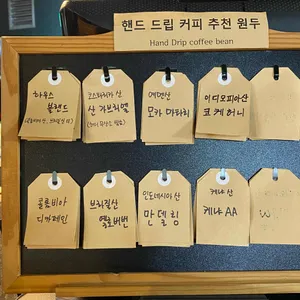 핸드 드립 커피 추천 원두
Hand Drip coffee bean
하우스
블렌드
코스타리카 산
산 가브리엘
예멘산
모카 마타리
이디오피아산
코케허니
콜롬비아
디카페인
브라질산
옐로버번
인도네시아 산
만델링
케냐 산
케냐 AA
W